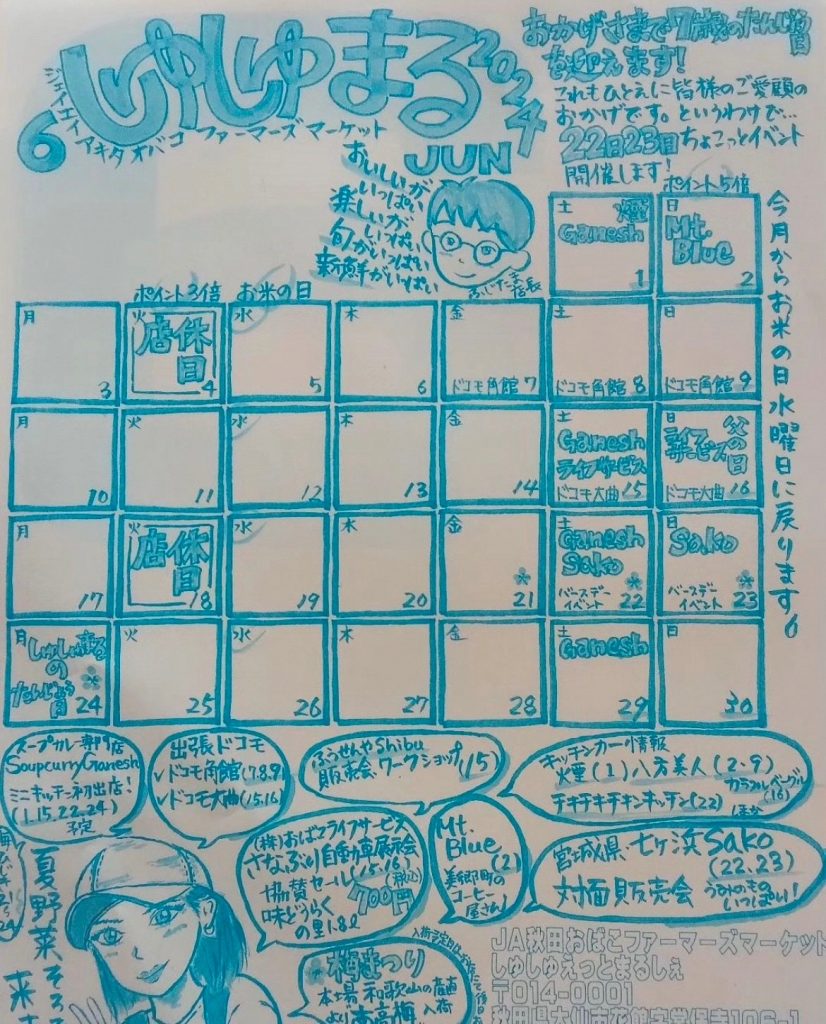 しゅしゅまる
2024
6
JUN
ジェイエイ アキタ オバコ ファーマーズ マーケット
おかげさまで7歳のたんじょう日
を迎えます!
これもひとえに皆様のご愛顧の
おかげです。というわけで…
22日23日ちょこっとイベント
開催します!
おいしいが、
いっぱい
楽しいが
いっぱい
旬がいっぱい
新鮮がいっぱい
ポイント5倍
今月からお米の日水曜日に戻ります。
土 煙 Ganesh 1
日 Mt. Blue 2
ポイント3倍
お米の日
月 3
火 店休日 4
水 5
木 6
金 ドコモ角館 7
土 ドコモ角館 8
日 ドコモ角館 9
月 10
火 11
水 12
木 13
金 14
土 Ganesh ライフサービス ドコモ大曲 15
日 ライフサービス 父の日 ドコモ大曲 16
月 17
火 店休日 18
水 19
木 20
金 21
土 Ganesh Sako バースデーイベント 22
日 Sako バースデーイベント 23
月 しゅしゅまるのたんじょう日 24
火 25
水 26
木 27
金 28
土 Ganesh 29
日 30
スープカレー専門店
Soupcurry Ganesh
ミニキッチン初出店!
(1.15.22.24)
予定
出張ドコモ
✓ドコモ角館(7.8.9)
✓ドコモ大曲(15.16)
ふうせんやShibu
販売会、ワークショップ(15)
キッチンカー情報
煙(1)八方美人(2.9)
チキチキチキンキッチン(22)
カラフルベーグル
(16)
ほか
(株)おばこライフサービス
さなぶり自動車展示会
(15.16)
協賛セール
味どうらく
の里1.8ℓ
700円
(税込)
Mt.
Blue
(2)
美郷町の
コーヒー
屋さん
宮城県・七ヶ浜Sako
(22.23)
対面販売会
うみのもの
いっぱい!
梅まつり
本場和歌山の産直
より南高梅
入荷
夏野菜そろ
JA秋田おばこファーマーズマーケット
しゅしゅえっとまるしぇ
〒014-0001
秋田県大仙市花館字常保寺106-1